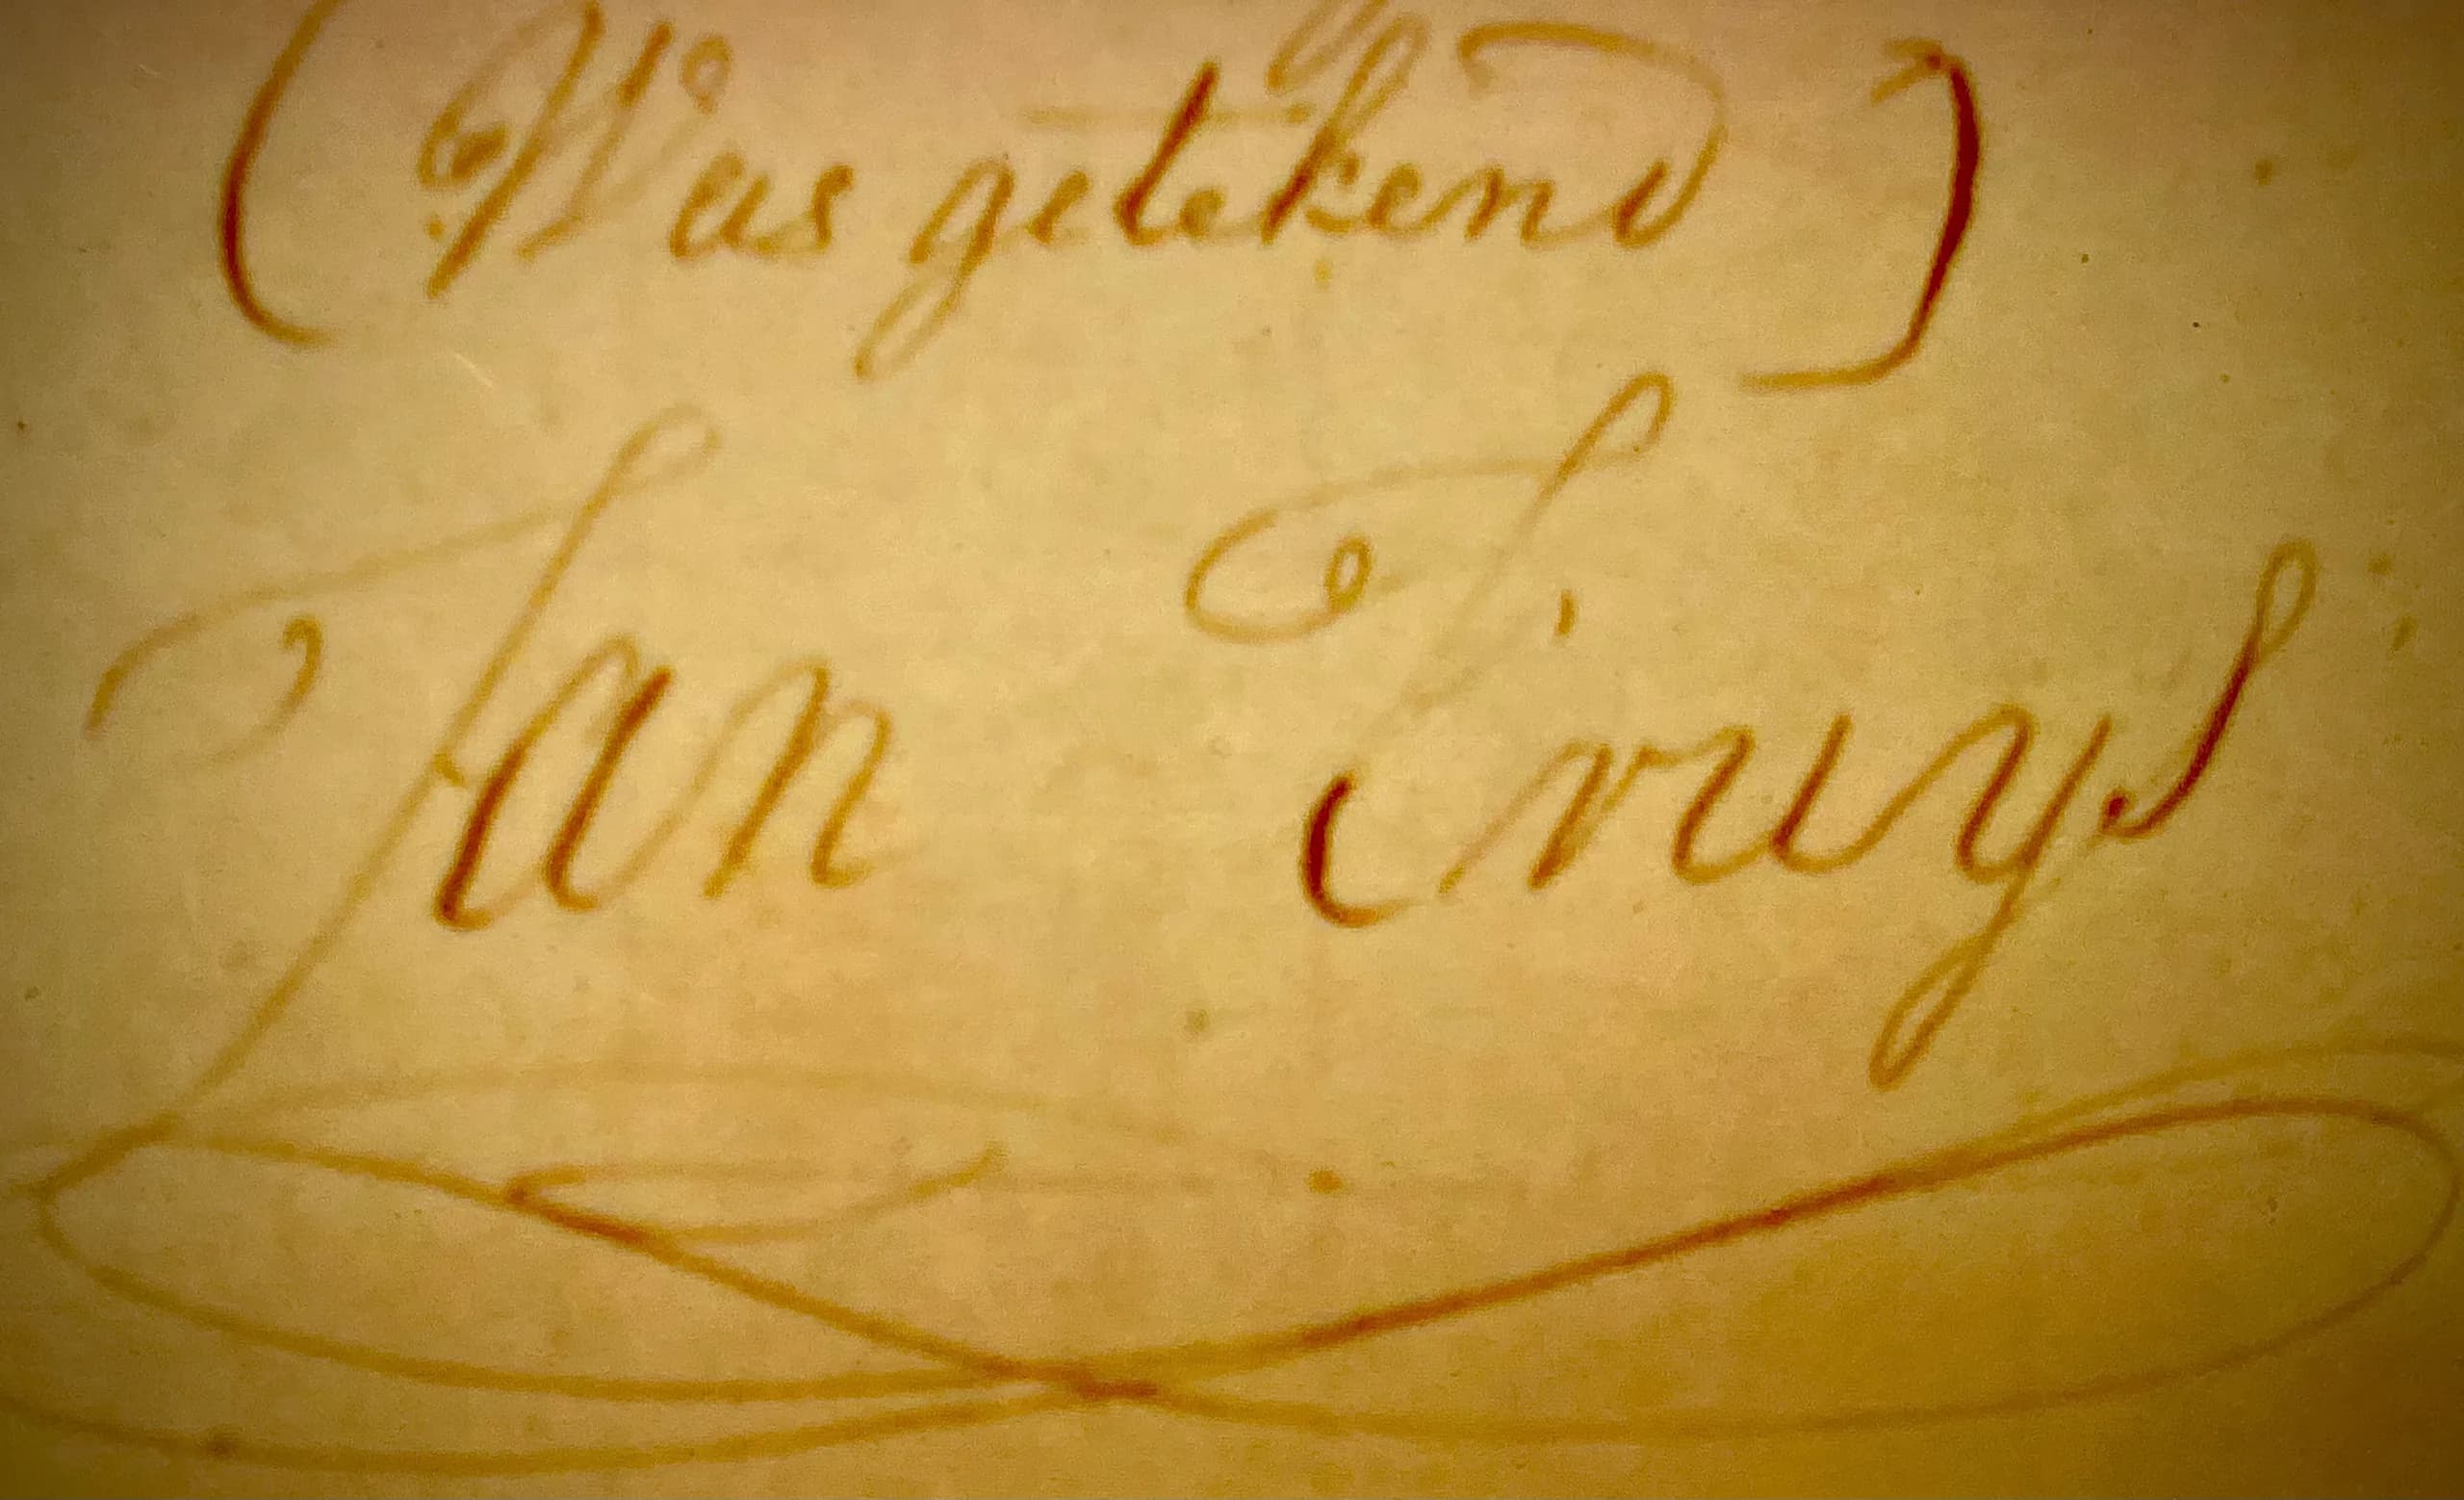 (Was getekend)
Jan Cruys